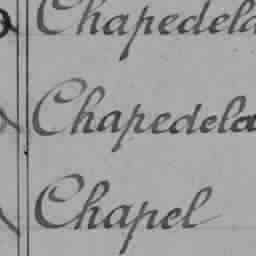 Chapedela
Chapedela
Chapel